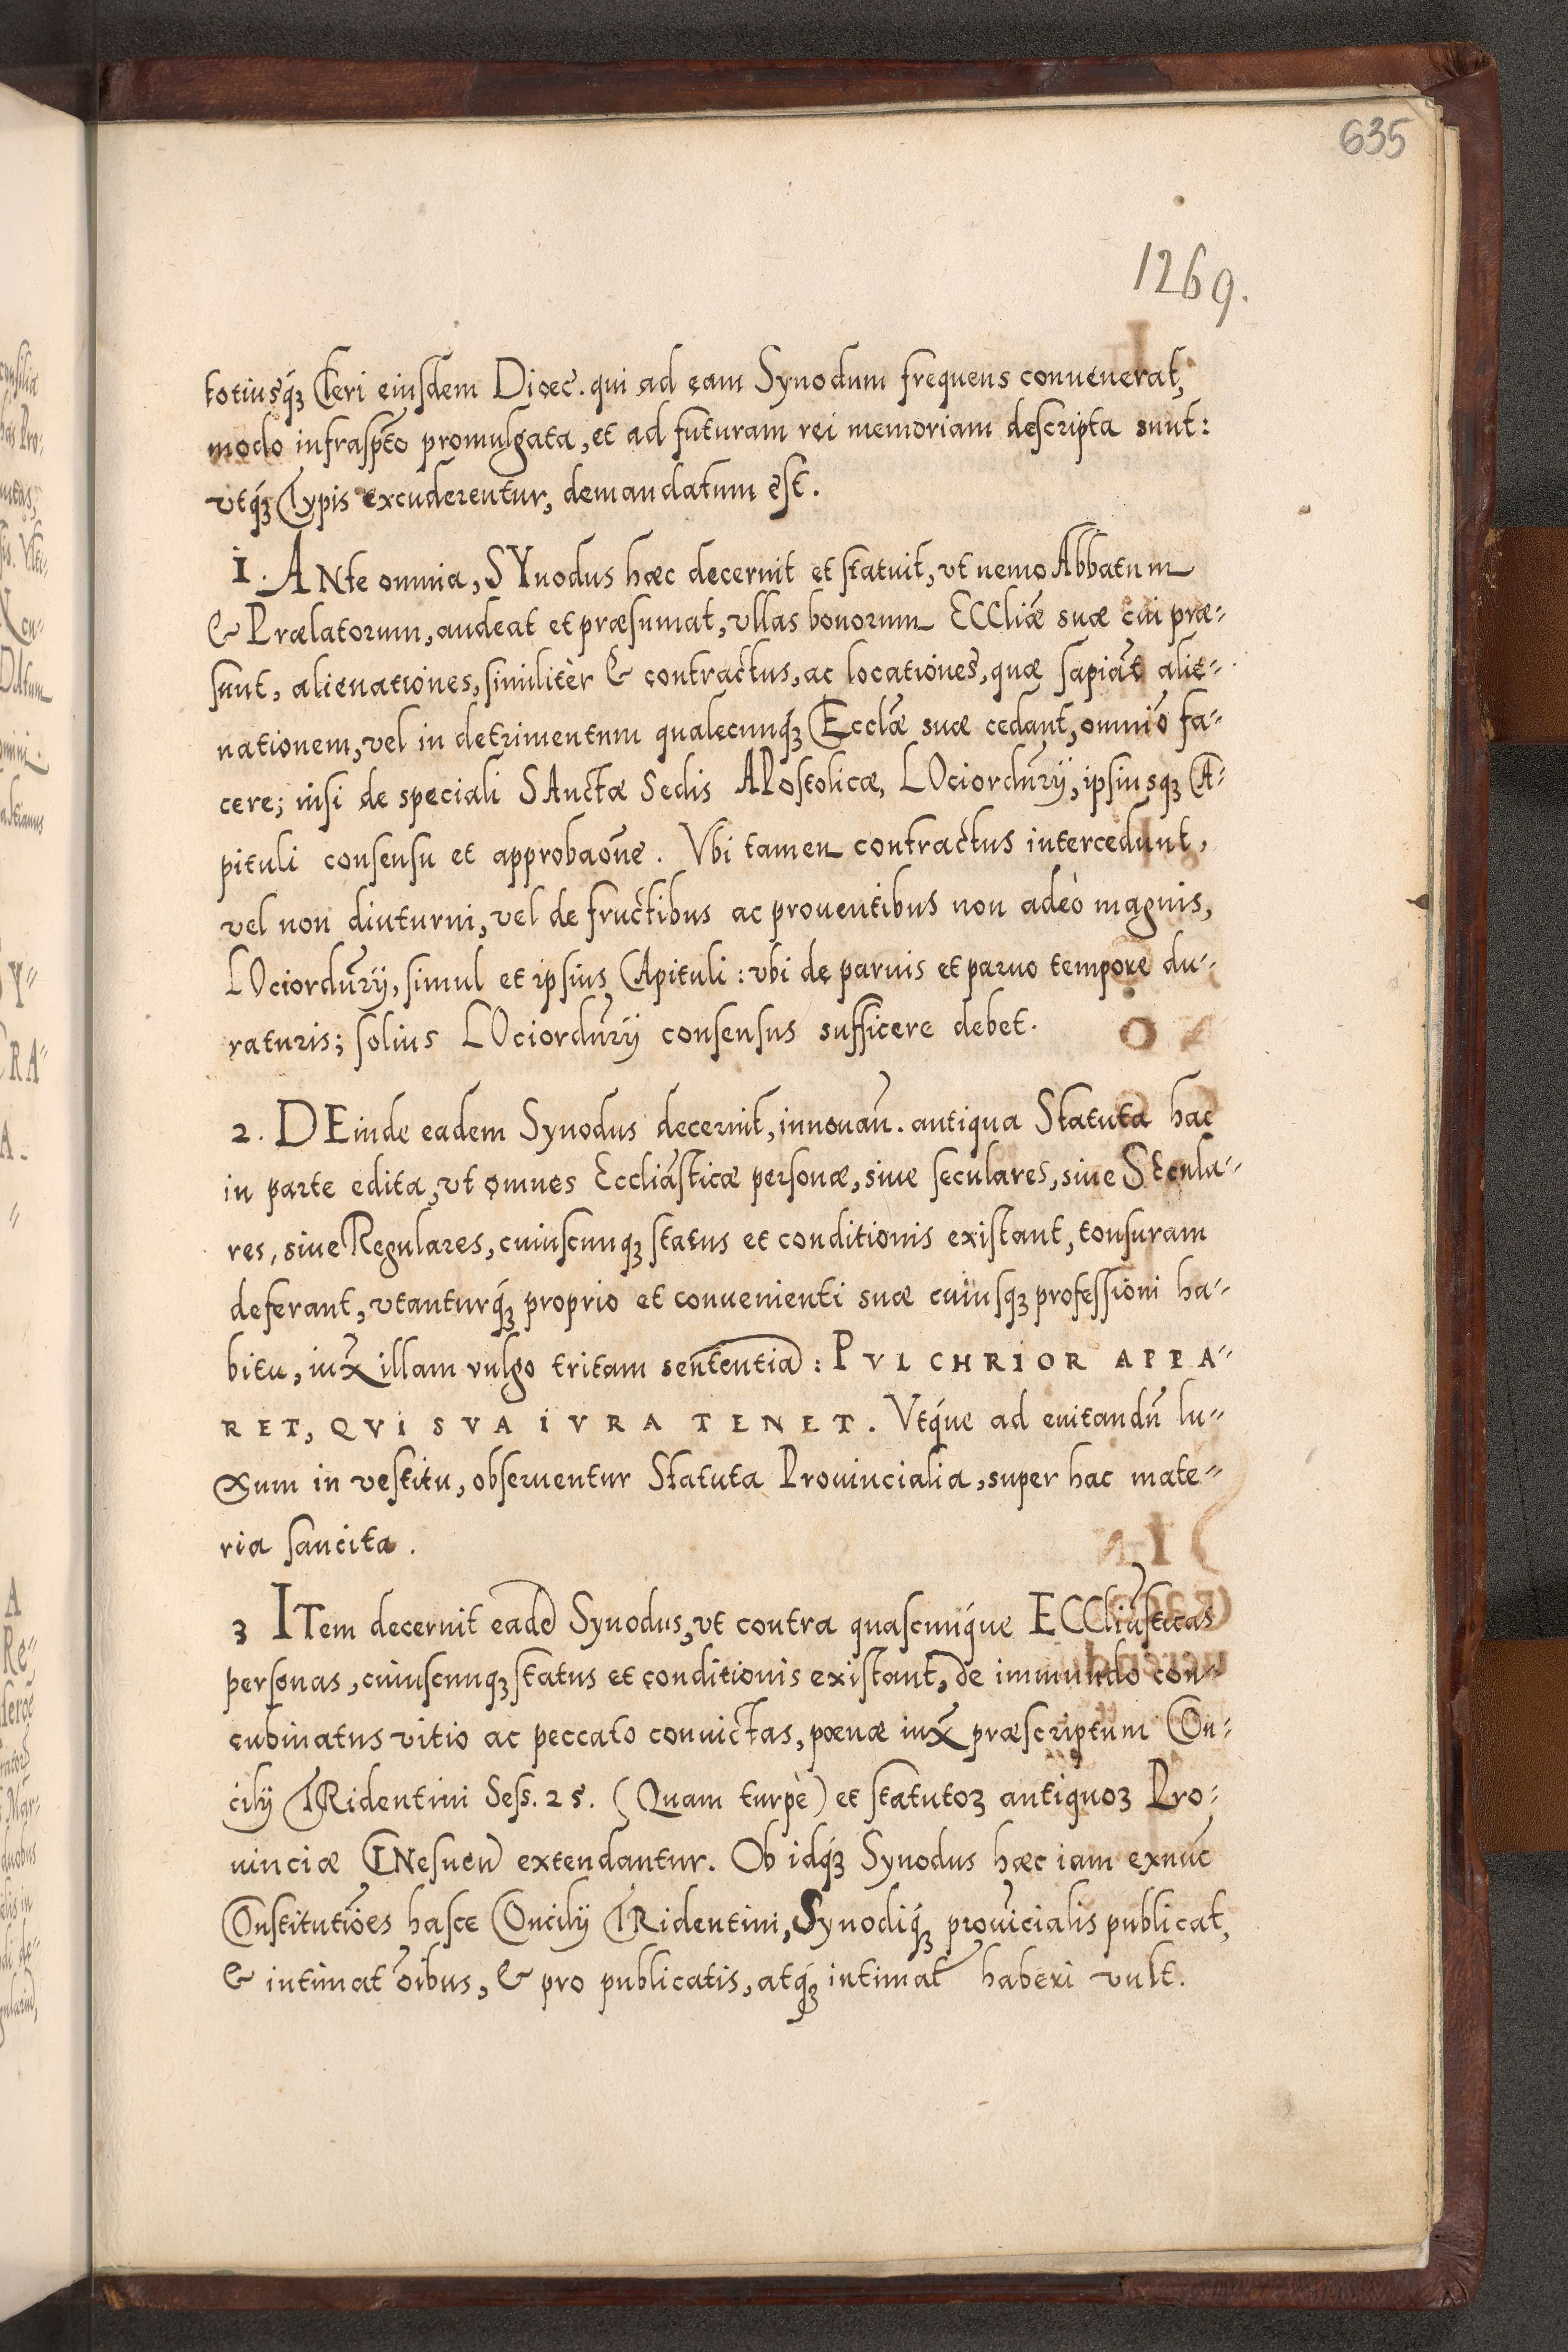 635
1269.
totiusq́ꝫ Cleri eiusdem Diœc. qui ad eam Synodum frequens conuenerat,
modo infraspto promulgata, et ad futuram rei memoriam descripta sunt:
vtq́ꝫ Typis excuderentur, demandatum est.
1. ANte omnia, SYnodus hæc decernit et statuit, vt nemo Abbatum
& Prælatorum, audeat et præsumat, vllas bonorum ECCliæ̃ suæ cui præ-
sunt, alienationes, similitèr & contractus, ac locationes, quæ sapiãt alie-
nationem, vel in detrimentum qualecunq́ꝫ Ecclæ̃ suæ cedant, omniõ fa-
cere; nisi de speciali SAnctæ Sedis APostolicæ, LOciordũrÿ, ipsiusqꝫ CA-
pituli consensu et approbaõne. Vbi tamen contractus intercedunt,
vel non diuturni, vel de fructibus ac prouentibus non adeò magnis,
LOciordũrÿ, simul et ipsius CApituli: vbi de paruis et paruo tempore du-
raturis; solius LOciordũrÿ consensus sufficere debet.
2. DEinde eadem Synodus decernit, innouañ. antiqua Statuta hac
in parte edita, vt omnes Eccliãsticæ personæ, siue seculares, siue SEcula-
res, siue Regulares, cuiuscunqꝫ status et conditionis existant, tonsuram
deferant, vtanturq́ꝫ proprio et conuenienti suæ cuiusqꝫ professioni ha-
bitu, iux̃ illam vulgo tritam sententiã: PVLCHRIOR APPA-
RET, QVI SVA IVRA TENET. Vtq́ue ad euitandũ lu-
xum in vestitu, obseruentur Statuta Prouincialia, super hac mate-
ria sancita.
3 ITem decernit eadẽ Synodus, vt contra quascunq́ue ECCliãsticas
personas, cuiuscunqꝫ status et conditionis existant, de immundo con-
cubinatus vitio ac peccato conuictas, pœnæ iux̃ præscriptum Con-
cilÿ TRidentini Sess. 25. (Quam turpè) et statutoꝝ antiquoꝝ Pro-
uinciæ GNesueñ extendantur. Ob idq́ꝫ Synodus hæc iam exnũc
Constitutiões hasce Concilÿ TRidentini, Synodiq́ꝫ prouĩcialis publicat,
& intimat oĩbus, & pro publicatis, atq́ꝫ intimat̃ haberi vult.